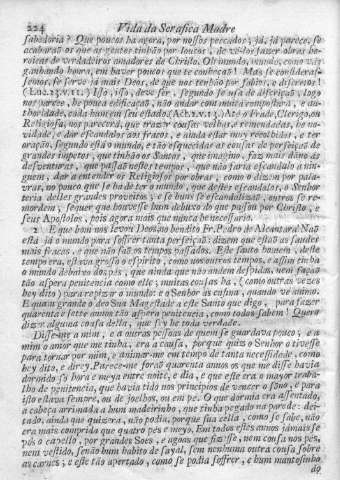 224 Vida da Serafica Madre
sabedoria? Que poucos ha agora, por nossos peccados; já, já parece, se
acabaraõ os que as gentes tinhão por loucos, de vellos fazer obras he-
roicas de verdadeiros amadores de Christo. Oh mundo, mundo, como vás
ganhando honra, em haver poucos que te conheçaõ! Mas se considera-
semos, se serve já mais Deos, de que nos tenhão por sabios, e discretos!
(Luc. 15. v. 11.) Isso, isso, deve ser, segundo se usa de discriçaõ, logo
nos parece, he pouca edificaçaõ, não andar com muita compostura, e au-
thoridade, cada hum em seu estado. Até o Frade, Clerigo, ou
Religiosa, nos parecerá, que trazer cousa velha, e remendada, he no-
vidade, e dar escandalos aos fracos, e ainda estar muy recolhidos, e ter
oraçaõ, segundo está o mundo, e tão esquecidas as cousas de perfeiçaõ de
grandes impetos, que tinhão os Santos, que imagino, faz mais dano às
desventuras, que passaõ nestes tempos, que não faria escandalo a nin-
guem, dar a entender os Religiosos por obras, como o dizem por pala-
vras, no pouco que se ha de ter o mundo, que destes escandalos, o Senhor
teria delles grandes proveitos; e se huns se escandalizaõ, outros se re-
mordem, sequer que houvesse hum debuxo do que passou por Christo, e
seus Apostolos, pois agora mais que nunca he necessario.
2. E que bom nos levou Deos, no bendito Fr. Pedro de Alcantara! Naõ
está já o mundo para soffrer tanta perfeiçaõ; dizem que estaõ as saudes
mais fracas, e que não saõ os tempos passados. Este santo homem, deste
tempo era, estava grosso o espirito, como nos outros tempos, e assim tinha
o mundo debaixo dos pés, que ainda que não andem despidas, nem façaõ
tão aspera penitencia como elle; muitas cousas ha, (como outras vezes
hey dito) para repisar o mundo: e o Senhor as ensina, quando ve animo.
E quam grande o deo Sua Magestade a este Santo que digo, para fazer
quarenta e sette annos tão aspera penitencia, como todos sabem! Quero
dizer alguma cousa della, que sey he toda verdade.
Disse-me a mim, e a outras pessoas de quem se guardava pouco; e a
mim o amor que me tinha, era a causa, porque quiz o Senhor o tivesse
para tornar por mim, e animar-me em tempo de tanta necessidade, como
hey dito, e direy. Parece-me foraõ quarenta annos os que me disse havia
dormido só hora e meya entre noite, e dia, e que este era o mayor traba-
lho de penitencia, que havia tido nos principios de vencer o sono, e para
isto estava sempre, ou de joelhos, ou em pé. O que dormia era assentado,
a cabeça arrimada a hum madeirinho, que tinha pregado na parede: dei-
tado, ainda que quizera, não podia, porque sua cella, como se sabe, não
era mais comprida que quatro pés e meyo. Em todos estes annos jámais se
pôs o capello, por grandes Soes, e agoas que fizesse, nem cousa nos pés,
nem vestido, senão hum habito de sayal, sem nenhuma outra cousa sobre
as carnes; e este tão apertado, como se podia soffrer, e hum mantosinho
do